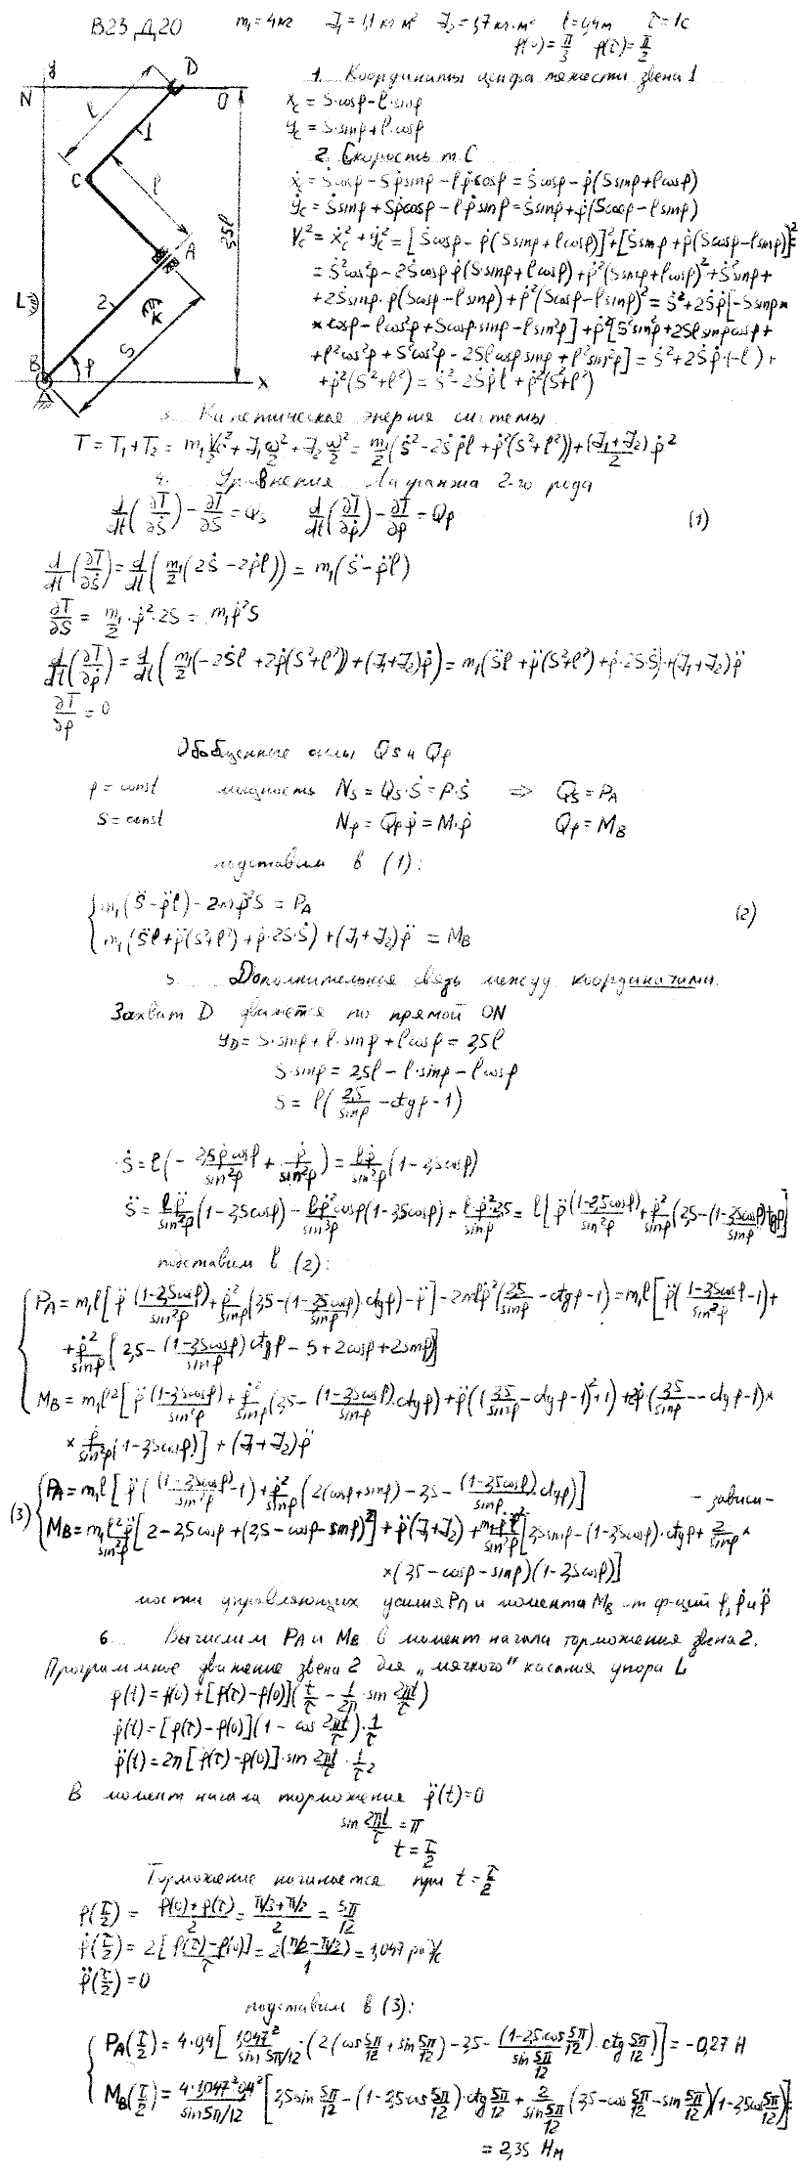 В23 Д20 m₁ = 4 кг J₁ = 1,1 кг м² J₂ = 1,7 кг·м² l = 0,4 м τ = 1с
φ(0) = π/3 φ(τ) = π/2
y N D O l 1 C l A 2,5l 2 L K S B φ x
1. Координаты центра тяжести звена 1
x_c = S·cosφ - l·sinφ
y_c = S·sinφ + l·cosφ
2. Скорость т. C
ẋ_c = Ṡcosφ - Sφ̇sinφ - lφ̇cosφ = Ṡcosφ - φ̇(S sinφ + l cosφ)
ẏ_c = Ṡsinφ + Sφ̇cosφ - lφ̇sinφ = Ṡsinφ + φ̇(S cosφ - l sinφ)
V_c² = ẋ_c² + ẏ_c² = [Ṡcosφ - φ̇(S sinφ + l cosφ)]² + [Ṡsinφ + φ̇(S cosφ - l sinφ)]² =
= Ṡ²cos²φ - 2Ṡcosφ φ̇(S·sinφ + l cosφ) + φ̇²(S sinφ + l cosφ)² + Ṡ²sin²φ +
+ 2Ṡsinφ·φ̇(S cosφ - l sinφ) + φ̇²(S cosφ - l sinφ)² = Ṡ² + 2Ṡφ̇[-S sinφ ×
× cosφ - l cos²φ + S cosφ·sinφ - l sin²φ] + φ̇²[S²sin²φ + 2Sl sinφ cosφ +
+ l²cos²φ + S²cos²φ - 2Sl cosφ sinφ + l²sin²φ] = Ṡ² + 2Ṡφ̇·(-l) +
+ φ̇²(S² + l²) = Ṡ² - 2Ṡφ̇l + φ̇²(S² + l²)
3. Кинетическая энергия системы
T = T₁ + T₂ = m₁V_c²/2 + J₁ω²/2 + J₂ω²/2 = m₁/2 (Ṡ² - 2Ṡφ̇l + φ̇²(S² + l²)) + (J₁ + J₂)/2 φ̇²
4. Уравнения Лагранжа 2-го рода
d/dt(∂T/∂Ṡ) - ∂T/∂S = Q_S d/dt(∂T/∂φ̇) - ∂T/∂φ = Q_φ (1)
d/dt(∂T/∂Ṡ) = d/dt(m₁/2 (2Ṡ - 2φ̇l)) = m₁(S̈ - φ̈l)
∂T/∂S = m₁/2·φ̇²·2S = m₁φ̇²S
d/dt(∂T/∂φ̇) = d/dt(m₁/2(-2Ṡl + 2φ̇(S² + l²)) + (J₁ + J₂)φ̇) = m₁(S̈l + φ̈(S² + l²) + φ̇·2SṠ) + (J₁ + J₂)φ̈
∂T/∂φ = 0
Обобщенные силы Q_S и Q_φ
φ = const мощность N_S = Q_S·Ṡ = P·Ṡ ⇒ Q_S = P_A
S = const N_φ = Q_φ φ̇ = M·φ̇ Q_φ = M_B
подставим в (1):
{ m₁(S̈ - φ̈l) - 2mφ̇²S = P_A (2)
m₁(S̈l + φ̈(S² + l²) + φ̇·2S·Ṡ) + (J₁ + J₂)φ̈ = M_B
5. Дополнительная связь между координатами.
Захват D движется по прямой ON
y_D = S·sinφ + l·sinφ + l cosφ = 2,5l
S·sinφ = 2,5l - l·sinφ - l cosφ
S = l(2,5/sinφ - ctgφ - 1)
Ṡ = l(-2,5φ̇cosφ/sin²φ + φ̇/sin²φ) = lφ̇/sin²φ (1 - 2,5cosφ)
S̈ = lφ̈/sin²φ (1 - 2,5cosφ) - lφ̇²/sin³φ cosφ(1 - 2,5cosφ) + l·φ̇²·2,5/sinφ = l[φ̈ (1 - 2,5cosφ)/sin²φ + φ̇²/sinφ (2,5 - (1 - 2,5cosφ)/sinφ ctgφ)]
подставим в (2):
{ P_A = m₁l[φ̈ (1 - 2,5cosφ)/sin²φ + φ̇²/sinφ (2,5 - (1 - 2,5cosφ)/sinφ·ctgφ) - φ̈] - 2mlφ̇²(2,5/sinφ - ctgφ - 1) = m₁l[φ̈((1 - 2,5cosφ)/sin²φ - 1) +
+ φ̇²/sinφ [2,5 - (1 - 2,5cosφ)/sinφ ctgφ - 5 + 2cosφ + 2sinφ]]
M_B = m₁l²[φ̈ (1 - 2,5cosφ)/sin²φ + φ̇²/sinφ (2,5 - (1 - 2,5cosφ)/sinφ·ctgφ) + φ̈((2,5/sinφ - ctgφ - 1)² + 1) + 2φ̇(2,5/sinφ - ctgφ - 1) ×
× φ̇/sin²φ (1 - 2,5cosφ)] + (J₁ + J₂)φ̈
(3) { P_A = m₁l[φ̈((1 - 2,5cosφ)/sin²φ - 1) + φ̇²/sinφ (2(cosφ + sinφ) - 2,5 - (1 - 2,5cosφ)/sinφ·ctgφ)] - зависи-
M_B = m₁l²φ̈/sin²φ [2 - 2,5cosφ + (2,5 - cosφ - sinφ)²] + φ̈(J₁ + J₂) + m₁φ̇²l²/sin²φ [2,5sinφ - (1 - 2,5cosφ)·ctgφ + 2/sinφ ×
× (2,5 - cosφ - sinφ)(1 - 2,5cosφ)]
мости управляющих усилия P_A и момента M_B от ф-ций φ, φ̇ и φ̈
6. Вычислим P_A и M_B в момент начала торможения звена 2.
Программное движение звена 2 для „мягкого" касания упора L
φ(t) = φ(0) + [φ(τ) - φ(0)](t/τ - 1/2π·sin 2πt/τ)
φ̇(t) = [φ(τ) - φ(0)](1 - cos 2πt/τ)·1/τ
φ̈(t) = 2π[φ(τ) - φ(0)]·sin 2πt/τ·1/τ²
В момент начала торможения φ̈(t) = 0
sin 2πt/τ = π
t = τ/2
Торможение начинается при t = τ/2
φ(τ/2) = (φ(0) + φ(τ))/2 = (π/3 + π/2)/2 = 5π/12
φ̇(τ/2) = 2[φ(τ) - φ(0)]/τ = 2(π/2 - π/3)/1 = 1,047 рад/с
φ̈(τ/2) = 0
подставим в (3):
{ P_A(τ/2) = 4·0,4[1,047²/sin 5π/12·(2(cos 5π/12 + sin 5π/12) - 2,5 - (1 - 2,5·cos 5π/12)/sin 5π/12·ctg 5π/12)] = -0,27 Н
M_B(τ/2) = 4·1,047²·0,4²/sin 5π/12 [2,5sin 5π/12 - (1 - 2,5cos 5π/12)·ctg 5π/12 + 2/sin 5π/12 (2,5 - cos 5π/12 - sin 5π/12)(1 - 2,5cos 5π/12)] =
= 2,35 Нм